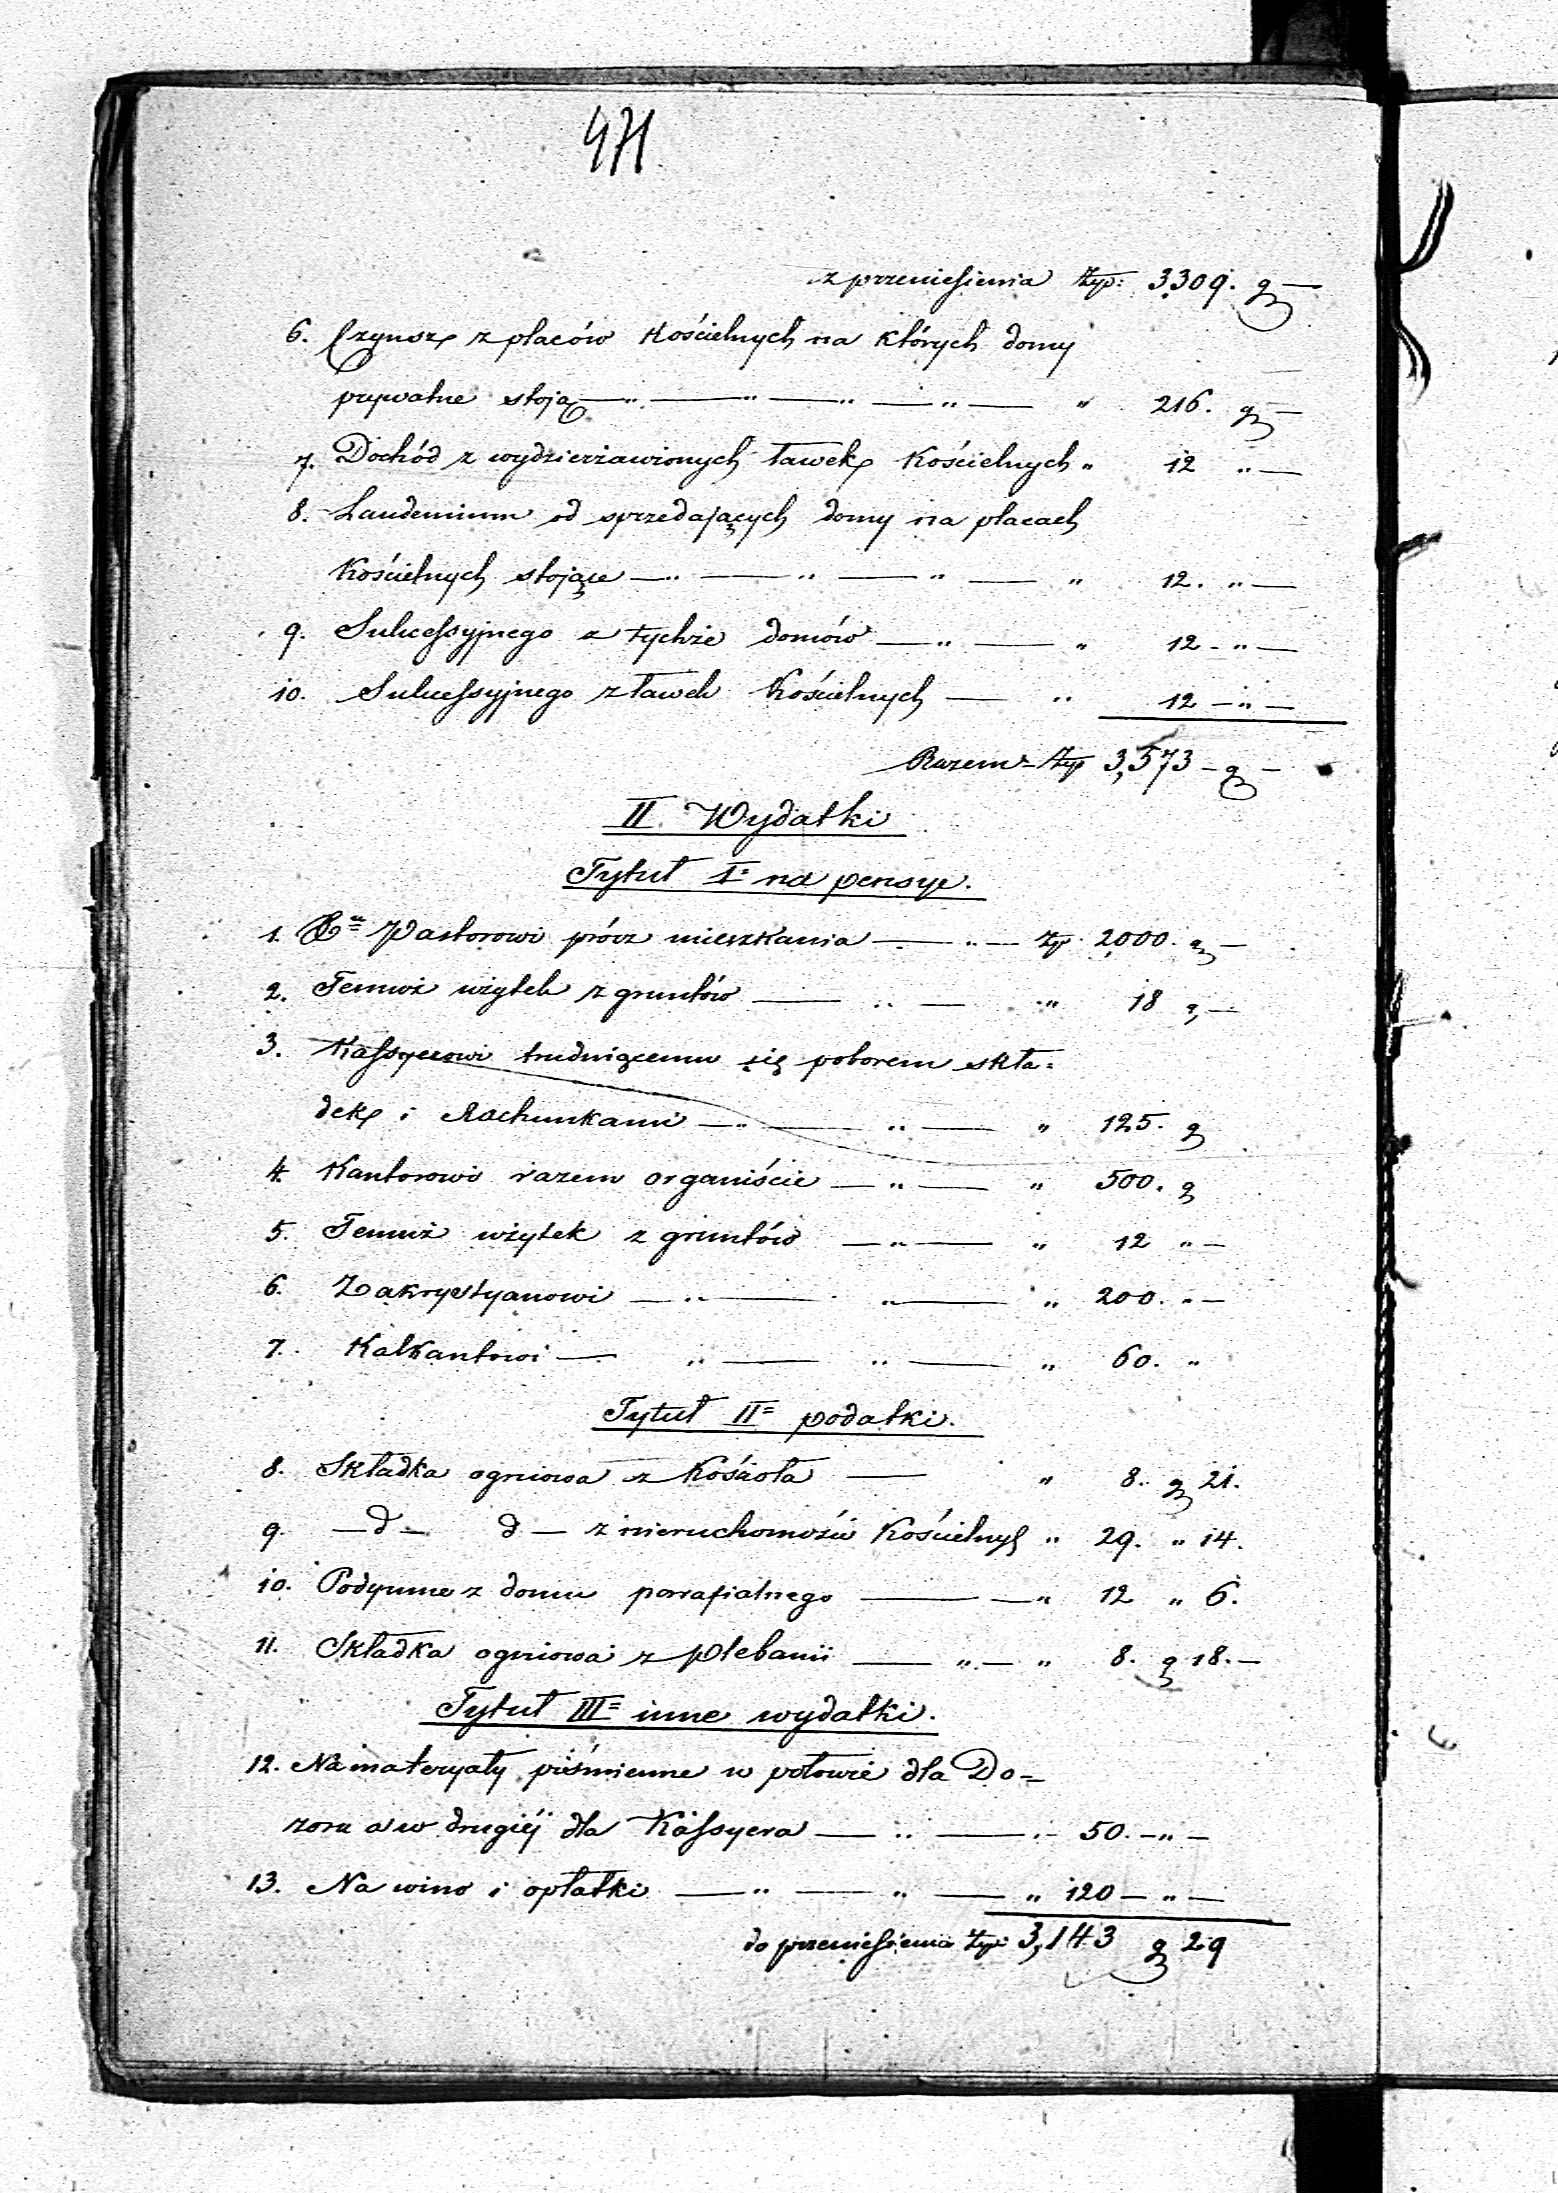 471
z przeniesienia Złp: 3309. g —
6. Czynsze z placów Kościelnych na których domy
prywatne stoją — " — " — " — " — " 216. g —
7. Dochód z wydzierżawionych ławek Kościelnych " 12 " —
8. Laudemium od sprzedających domy na placach
Kościelnych stojące — " — " — " — " 12. " —
9. Sukcessyjnego z tychże domów — " — " 12 - " —
10. Sukcessyjnego z ławek Kościelnych — " 12 - " —
Razem - Złp 3,573 - g —
II. Wydatki
Tytuł I: na pensye.
1. Pastorowi prócz mieszkania — " — Złp 2000. g —
2. Temuż użytek z gruntów — " — " 18 g —
3. Kassyerowi trudniącemu się poborem skła=
dek i Rachunkami — " — " — " 125. g
4. Kantorowi razem organiście — " — " 500. g
5. Temuż użytek z gruntów — " — " 12 " —
6. Zakrystyanowi — " — " — " 200. " —
7. Kalkantowi — " — " — " 60. "
Tytuł II= podatki.
8. Składka ogniowa z Kościoła — " 8. g 21.
9. — d — d — z nieruchomości Kościelnych " 29. " 14.
10. Podymne z domu parafialnego — — " 12 " 6.
11. Składka ogniowa z plebanii — " — " 8. g 18. —
Tytuł III= inne wydatki.
12. Na materyały piśmienne w połowie dla Do=
zoru a w drugiéj dla Kassyera — " — " 50. — " —
13. Na wino i opłatki — " — " — " 120 — " —
do przeniesienia Złp: 3,143 g 29